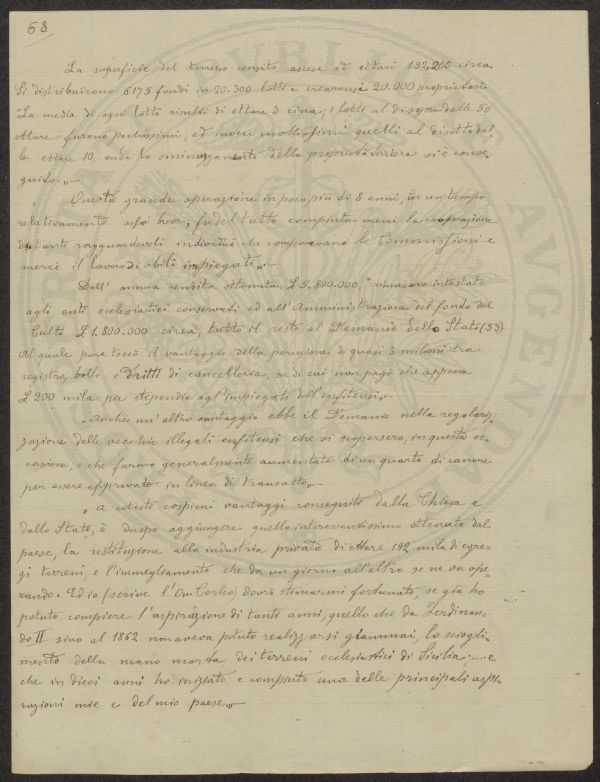 68
La superficie del terreno censito ascese ad ettari 192,200 circa.
Si distribuirono 6175 fondi in 20.300 lotti e crearonsi 20.000 proprietari.
La media di ogni lotto risultò di ettare 9 circa; i lotti al disopra delle 50
ettare furono pochissimi, ed invece moltissimi quelli al disotto del-
le ettare 10, onde lo sminuzzamento della proprietà fondiaria si è conse-
guito.„-
Questa grande operazione in poco più di 8 anni, in un tempo
relativamente breve, fu del tutto compiuta mercè la cooperazione
di tanti ragguardevoli individui che componevano le Commissioni e
mercè il lavoro di abili impiegati„-
Dell' annua rendita ottenuta £ 5.800.000, rimasero intestate
agli enti ecclesiastici conservati ed all'Amministrazione del fondo del
Culto £ 1.800.000 circa, tutto il resto al Demanio dello Stato (53)
al quale pure toccò il vantaggio della percezione di quasi 3 milioni tra
registro, bollo e dritti di cancelleria, su di cui non pagò che appena
£ 200 mila per stipendio agl'impiegati dell'enfiteusi„-
Anche un'altro vantaggio ebbe il Demanio nella regolariz-
zazione delle vecchie illegali enfiteusi che si scopersero, in questa oc-
casione, e che furono generalmente aumentate di un quarto di canone
per essere approvate in linea di transatto„-
„ A cotesti cospicui vantaggi conseguiti dalla Chiesa e
dallo Stato, è duopo aggiungere quello interessantissimo ottenuto dal
paese, la restituzione alla industria privata di ettare 192 mila di egre-
gi terreni, e l'immegliamento che da un giorno all'altro se ne va ope-
rando. Ed io (scrive l'On. Corleo) dovrò stimarmi fortunato, se già ho
potuto compiere l'aspirazione di tanti anni, quello che da Ferdinan-
do II sino al 1862 non aveva potuto realizzarsi giammai, lo sciogli-
mento della mano morta dei terreni ecclesiastici di Sicilia..... e
che in dieci anni ho iniziato e compiuto una delle principali aspi-
razioni mie e del mio paese„-